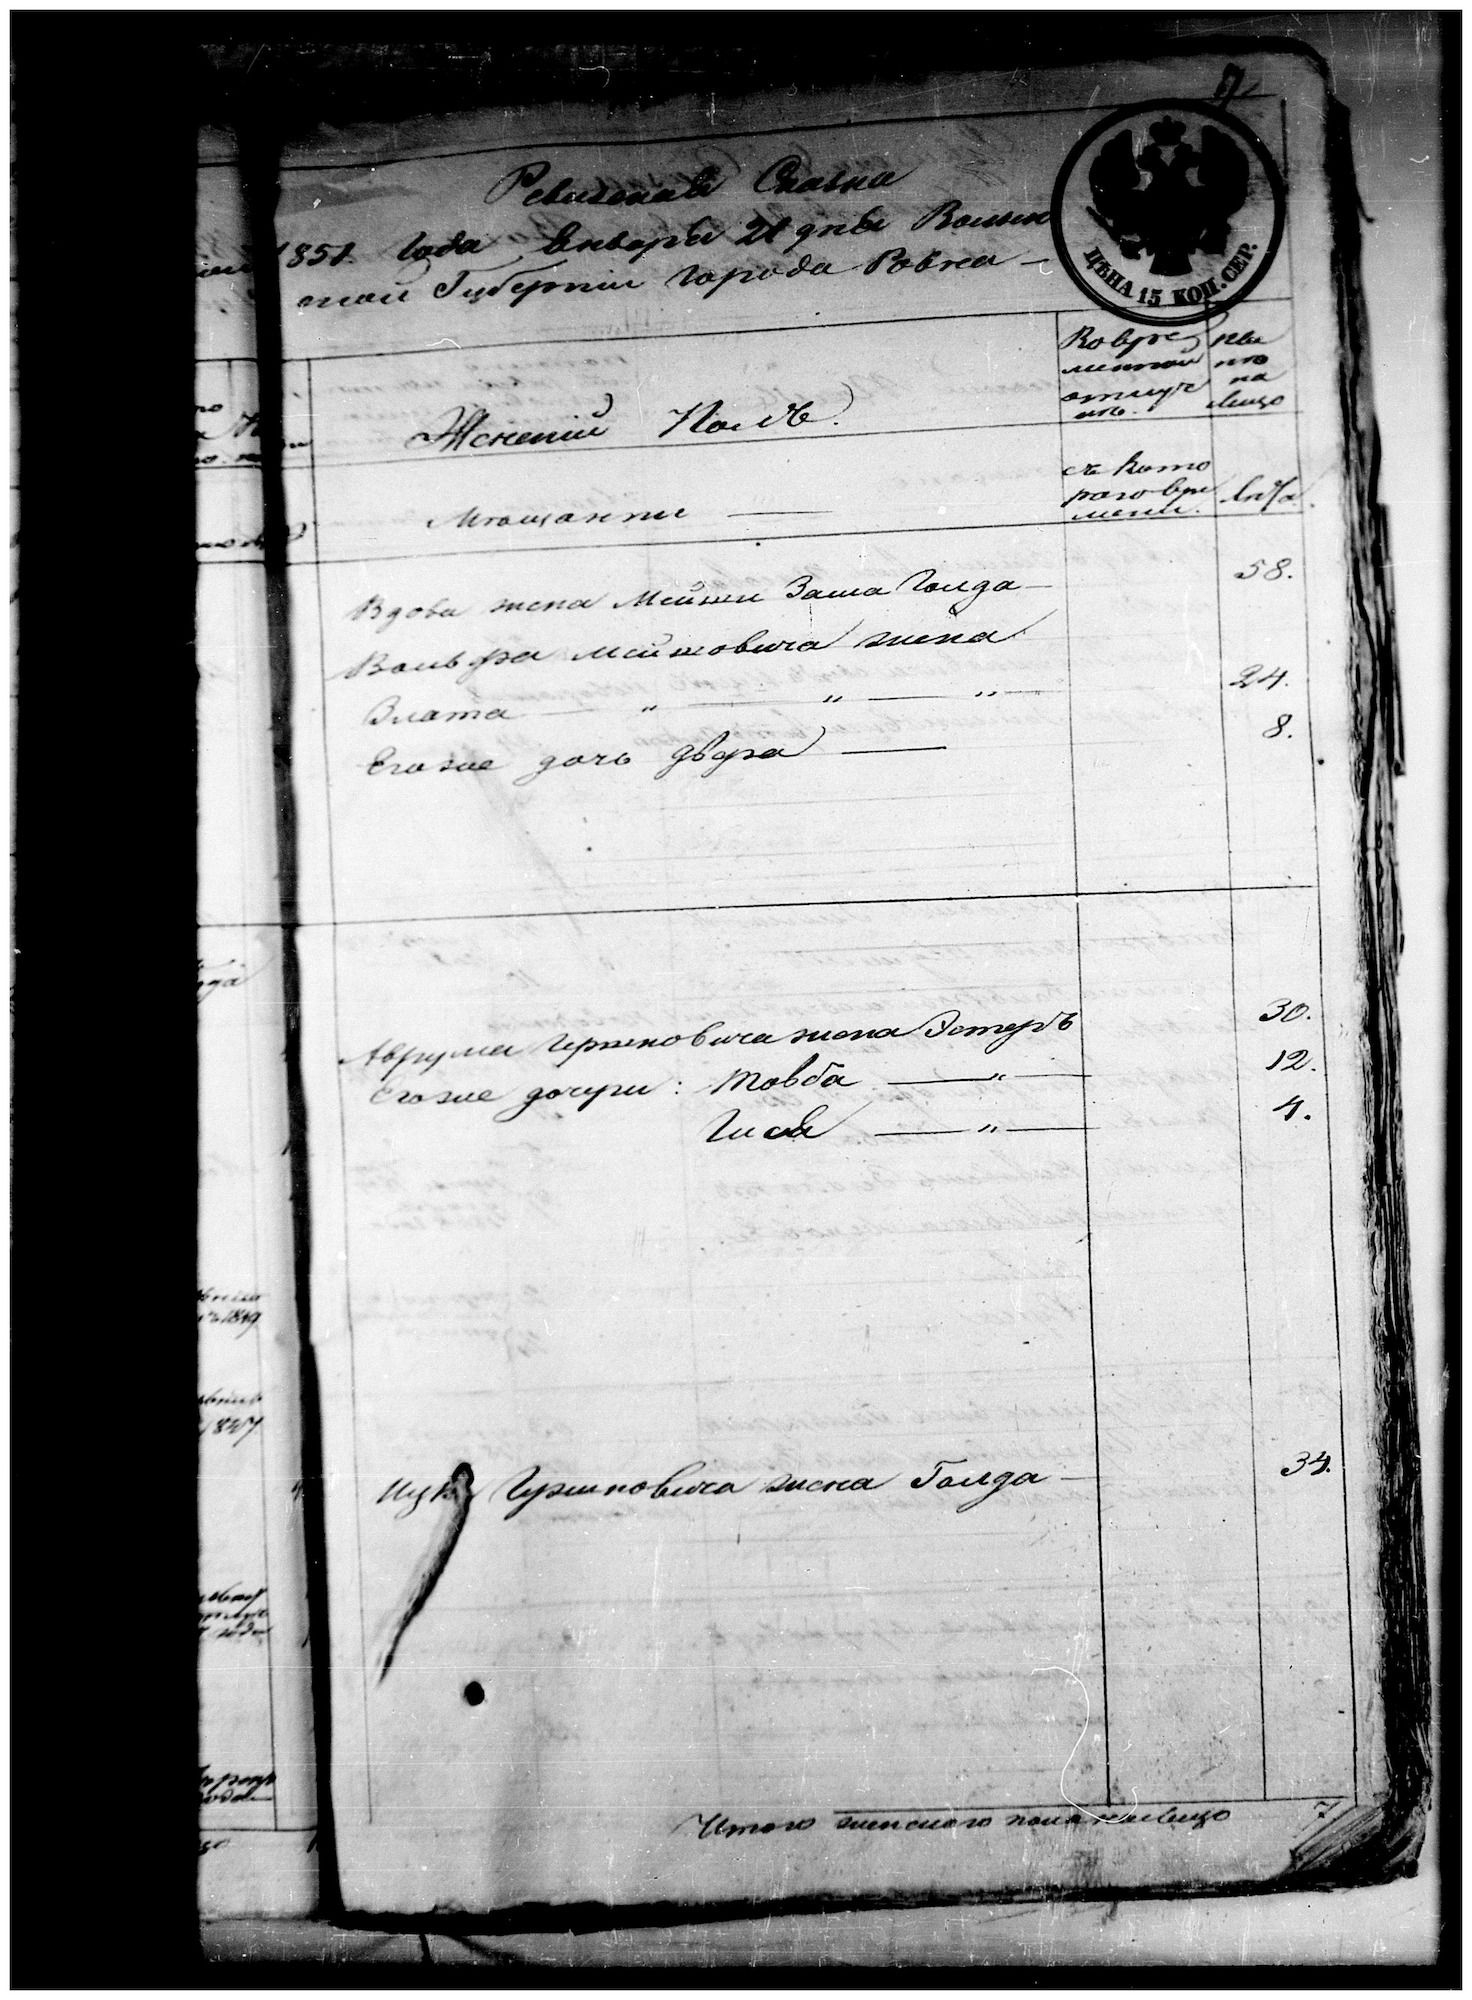 7
Ревизская Сказка
1851. Года Января 21 дня Волын
ской Губерніи города Ровна —
ЦѢНА 15 КОП. СЕР.
Женскій Полъ.
Во вре
менной
отлуч
кѣ.
ны
нѣ
на
лицо
Мѣщанки —
съ кото
раго вре
мени.
Лѣта.
Вдова жена Мейши Заша Голда — 58.
Вольфа Мейшовича жена
Злата — „ — „ — „ — 24.
Его же дочь Двора — 8.
Аврума Гершковича жена Эстеръ 30.
Его же дочери: Товба — „ — 12.
Гися — „ — 4.
1849
1847
Ицка Гершковича жена Голда — 34.
Итого женскаго пола на лицо 7